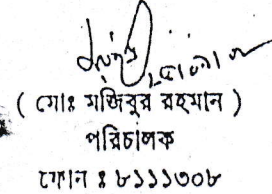 ( মোঃ মজিবুর রহমান )
পরিচালক
ফোন ঃ ৮১১১৩০৮